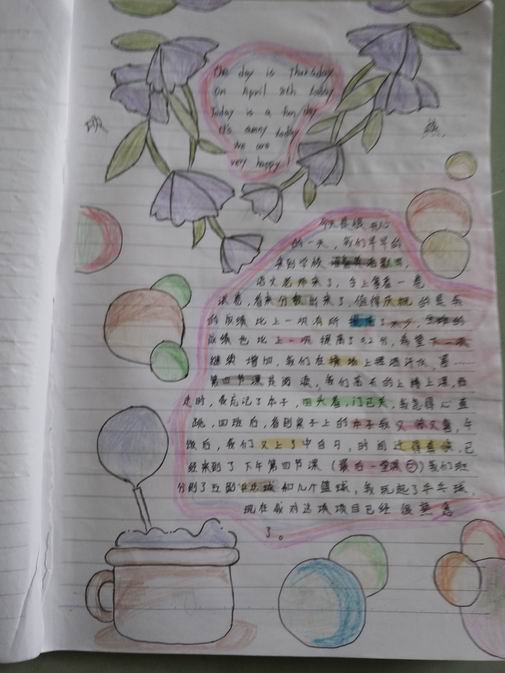 One day is Thursday
On April 8th today
Today is a fun day
It's sunny today
We are
very happy!
今天是很开心
的一天，我们早早的
来到学校
语文老师来了，手上拿着一卷
试卷，看来分数出来了，值得庆祝的是我
的成绩比上一次有所提高了
成绩也比上一次提高了
继续增加，我们在操场上挥洒汗水，
第四节课是阅读，我们去
走时，我忘记了本子，回头看，门已关，我急得心直
跳，回班后，看到桌子上的本子我又
饭后，我们又上了中自习，时间过得真快，已
经来到了下午第四节课（最后一堂课）我们班
分到了五副乒乓球和几个篮球，我玩起了乒乓球，
现在我对这项项目已经很熟悉
了。